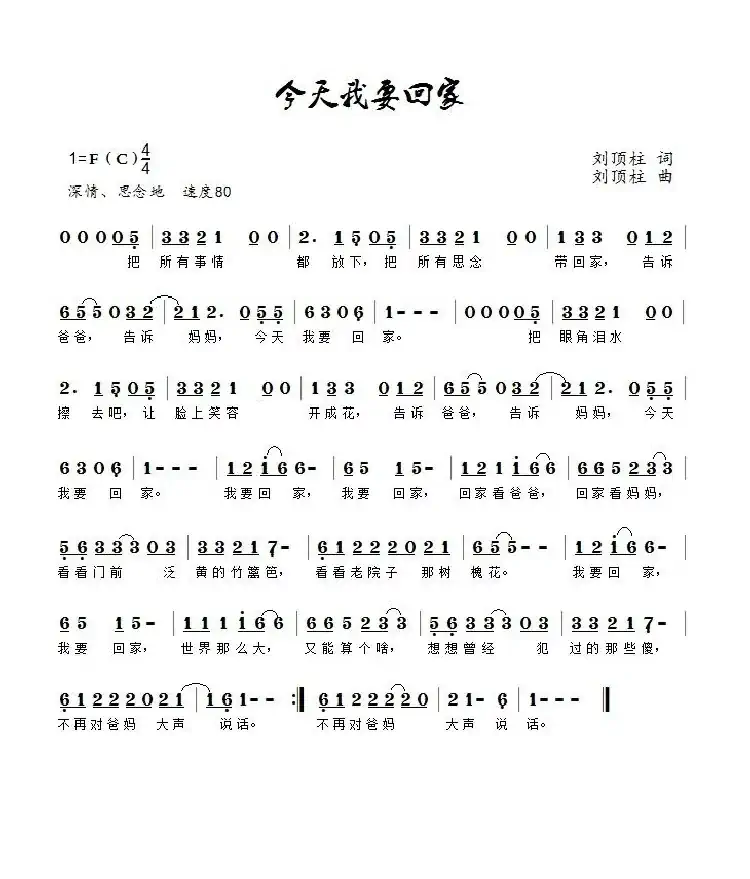 今天我要回家
1=F（C）4/4
刘顶柱 词
刘顶柱 曲
深情、思念地 速度80
0 0 0 0 5 | 3 3 2 1 0 0 | 2. 1 5 0 5 | 3 3 2 1 0 0 | 1 3 3 0 1 2 |
把 所有事情 都 放下，把 所有思念 带回家，告诉
6 5 5 0 3 2 | 2 1 2. 0 5 5 | 6 3 0 6 | 1 - - - | 0 0 0 0 5 | 3 3 2 1 0 0 |
爸爸，告诉 妈妈，今天 我要 回 家。 把 眼角泪水
2. 1 5 0 5 | 3 3 2 1 0 0 | 1 3 3 0 1 2 | 6 5 5 0 3 2 | 2 1 2. 0 5 5 |
擦 去吧，让 脸上笑容 开成花，告诉 爸爸，告诉 妈妈，今天
6 3 0 6 | 1 - - - | 1 2 i 6 6 - | 6 5 1 5 - | 1 2 1 i 6 6 | 6 6 5 2 3 3 |
我要 回 家。 我要回 家，我要 回家，回家看爸爸，回家看妈妈，
5 6 3 3 3 0 3 | 3 3 2 1 7 - | 6 1 2 2 2 0 2 1 | 6 5 5 - - | 1 2 i 6 6 - |
看看门前 泛 黄的竹篱笆，看看老院子 那树 槐花。 我要回 家，
6 5 1 5 - | 1 1 1 i 6 6 | 6 6 5 2 3 3 | 5 6 3 3 3 0 3 | 3 3 2 1 7 - |
我要 回家，世界那么大，又能算个啥，想想曾经 犯 过的那些傻，
6 1 2 2 2 0 2 1 | 1 6 1 - - :‖ 6 1 2 2 2 2 0 | 2 1 - 6 | 1 - - - ‖
不再对爸妈 大声 说话。 不再对爸妈 大声 说 话。